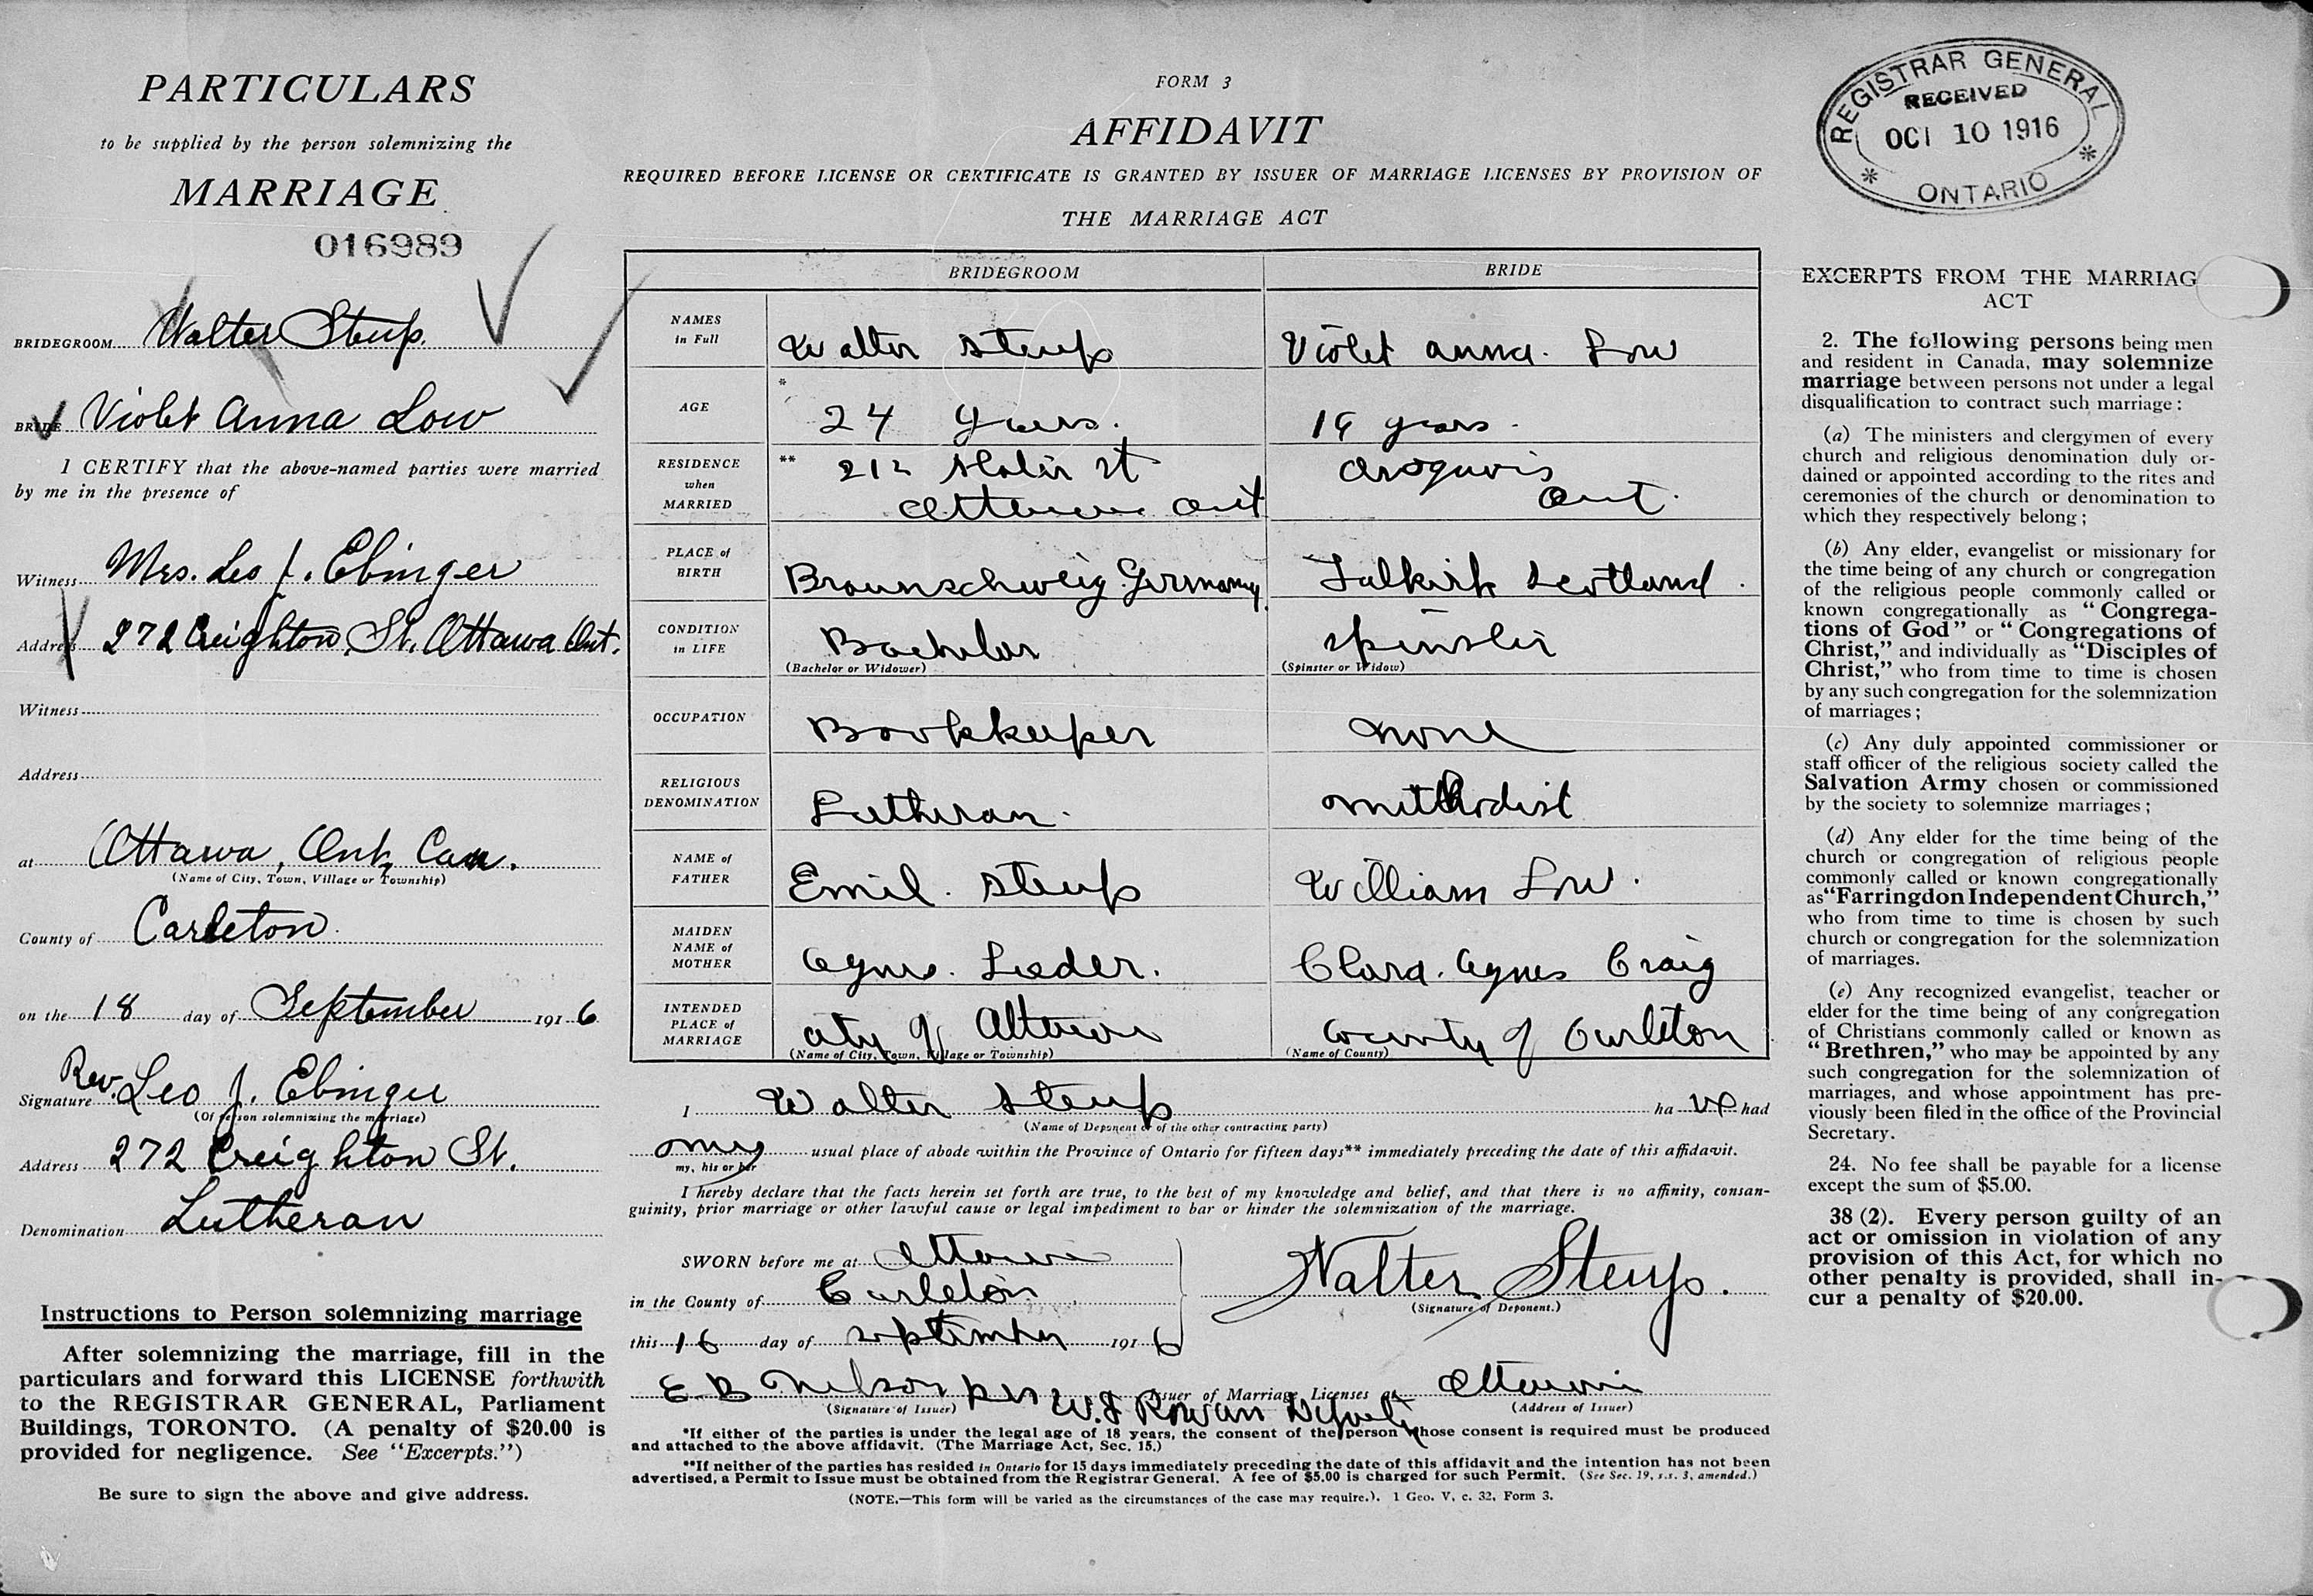 PARTICULARS
to be supplied by the person solemnizing the
MARRIAGE
016989
BRIDEGROOM Walter Steup.
BRIDE Violet Anna Low
I CERTIFY that the above-named parties were married
by me in the presence of
Witness Mrs. Leo J. Ebinger
Address 272 Creighton St. Ottawa Ont.
Witness
Address
at Ottawa, Ont, Can.
(Name of City, Town, Village or Township)
County of Carleton.
on the 18 day of September 1916
Signature Rev. Leo J. Ebinger
(Of person solemnizing the marriage)
Address 272 Creighton St.
Denomination Lutheran
Instructions to Person solemnizing marriage
After solemnizing the marriage, fill in the
particulars and forward this LICENSE forthwith
to the REGISTRAR GENERAL, Parliament
Buildings, TORONTO. (A penalty of $20.00 is
provided for negligence. See "Excerpts.")
Be sure to sign the above and give address.
FORM 3
AFFIDAVIT
REQUIRED BEFORE LICENSE OR CERTIFICATE IS GRANTED BY ISSUER OF MARRIAGE LICENSES BY PROVISION OF
THE MARRIAGE ACT
BRIDEGROOM BRIDE
NAMES in Full Walter Steup Violet Anna. Low
AGE * 24 years. years.
RESIDENCE when MARRIED ** 212 Slater St
Ottawa Ont Ont.
PLACE of BIRTH Braunschweig Germany. Falkirk Scotland.
CONDITION in LIFE Bachelor Spinster
(Bachelor or Widower) (Spinster or Widow)
OCCUPATION Bookkeeper none
RELIGIOUS DENOMINATION Lutheran. Methodist
NAME of FATHER Emil. Steup William Low.
MAIDEN NAME of MOTHER Agnes. Leder. Clara. Agnes Craig
INTENDED PLACE of MARRIAGE City of Ottawa County of Carleton
(Name of City, Town, Village or Township) (Name of County)
I Walter Steup ha ve had
(Name of Deponent or of the other contracting party)
my usual place of abode within the Province of Ontario for fifteen days** immediately preceding the date of this affidavit.
my, his or her
I hereby declare that the facts herein set forth are true, to the best of my knowledge and belief, and that there is no affinity, consan-
guinity, prior marriage or other lawful cause or legal impediment to bar or hinder the solemnization of the marriage.
SWORN before me at Ottawa
in the County of Carleton
this 16 day of September 1916
Walter Steup.
(Signature of Deponent.)
E B Nelson per Issuer of Marriage Licenses at Ottawa
(Signature of Issuer) W. J Rowan Deputy (Address of Issuer)
*If either of the parties is under the legal age of 18 years, the consent of the person whose consent is required must be produced
and attached to the above affidavit. (The Marriage Act, Sec. 15.)
**If neither of the parties has resided in Ontario for 15 days immediately preceding the date of this affidavit and the intention has not been
advertised, a Permit to Issue must be obtained from the Registrar General. A fee of $5.00 is charged for such Permit. (See Sec. 19, s.s. 3, amended.)
(NOTE.—This form will be varied as the circumstances of the case may require.). 1 Geo. V, c. 32, Form 3.
REGISTRAR GENERAL
RECEIVED
OCT 10 1916
* ONTARIO *
EXCERPTS FROM THE MARRIAG
ACT
2. The following persons being men
and resident in Canada, may solemnize
marriage between persons not under a legal
disqualification to contract such marriage:
(a) The ministers and clergymen of every
church and religious denomination duly or-
dained or appointed according to the rites and
ceremonies of the church or denomination to
which they respectively belong;
(b) Any elder, evangelist or missionary for
the time being of any church or congregation
of the religious people commonly called or
known congregationally as "Congrega-
tions of God" or "Congregations of
Christ," and individually as "Disciples of
Christ," who from time to time is chosen
by any such congregation for the solemnization
of marriages;
(c) Any duly appointed commissioner or
staff officer of the religious society called the
Salvation Army chosen or commissioned
by the society to solemnize marriages;
(d) Any elder for the time being of the
church or congregation of religious people
commonly called or known congregationally
as "Farringdon Independent Church,"
who from time to time is chosen by such
church or congregation for the solemnization
of marriages.
(e) Any recognized evangelist, teacher or
elder for the time being of any congregation
of Christians commonly called or known as
"Brethren," who may be appointed by any
such congregation for the solemnization of
marriages, and whose appointment has pre-
viously been filed in the office of the Provincial
Secretary.
24. No fee shall be payable for a license
except the sum of $5.00.
38 (2). Every person guilty of an
act or omission in violation of any
provision of this Act, for which no
other penalty is provided, shall in-
cur a penalty of $20.00.